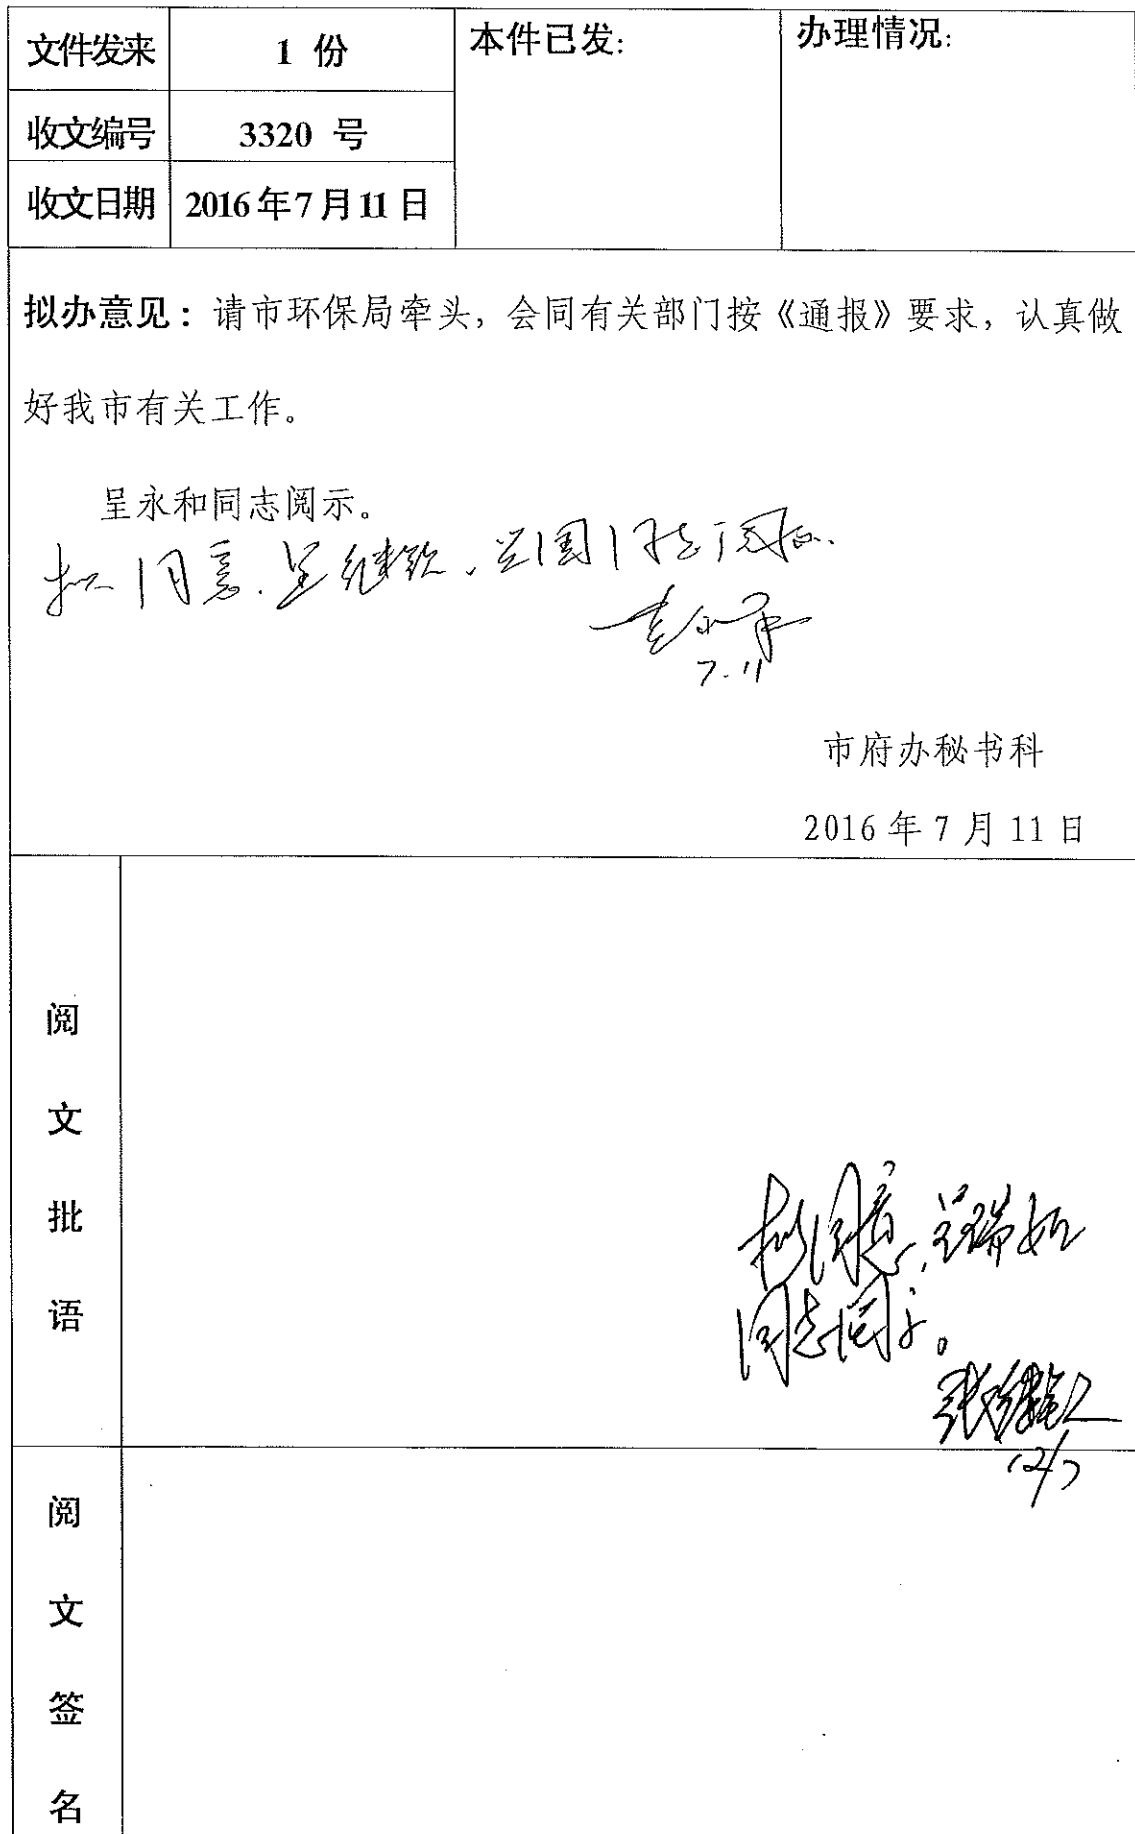 文件发来 1 份 本件已发： 办理情况：
收文编号 3320 号
收文日期 2016年7月11日
拟办意见：请市环保局牵头，会同有关部门按《通报》要求，认真做
好我市有关工作。
呈永和同志阅示。
拟同意.呈继钦、兰国同志阅示.
7.11
市府办秘书科
2016年7月11日
阅文批语
拟同意，呈瑞如
同志阅示。
张继钦
12/7
阅文签名